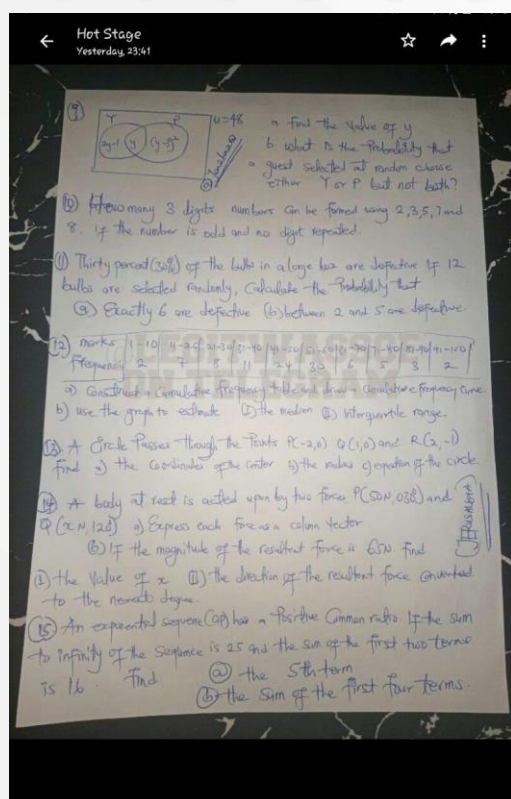 Hot Stage
Yesterday, 23:41
9
Y P U=48
2y-1 y (y-3)²
a. find the value of y
b. what is the Probability that
a guest selected at random choose
either Y or P but not both?
10 How many 3 digits numbers can be formed using 2,3,5,7 and
8. if the number is odd and no digit repeated.
11) Thirty percent (30%) of the bulbs in a large box are defective. If 12
bulbs are selected randomly, Calculate the Probability that
(a) Exactly 6 are defective (b) between 2 and 5 are defective
12) marks 1-10 11-20 21-30 31-40 41-50 51-60 61-70 71-80 81-90 91-100
Frequency 2 7 8 11 24 30 6 5 3 2
a) Construct a Cumulative frequency table and draw a Cumulative frequency Curve.
b) use the graph to estimate (I) the median (II) interquartile range.
13. A Circle Passes through the Points P(-2,0) Q(1,0) and R(2,-1)
find a) the Coordinates of the center b) the radius equation of the circle
14 A body at rest is acted upon by two forces P(50N, 030°) and
Q (x N, 120°) a) Express each force as a column vector
(b) If the magnitude of the resultant force is 65N find
(I) the value of x (II) the direction of the resultant force
to the nearest degree.
15) An exponential sequence (GP) has a Positive Common ratio. If the sum
to infinity of the Sequence is 25 and the sum of the first two terms
is 16. Find (a) the 5th term
(b) the sum of the first four terms.